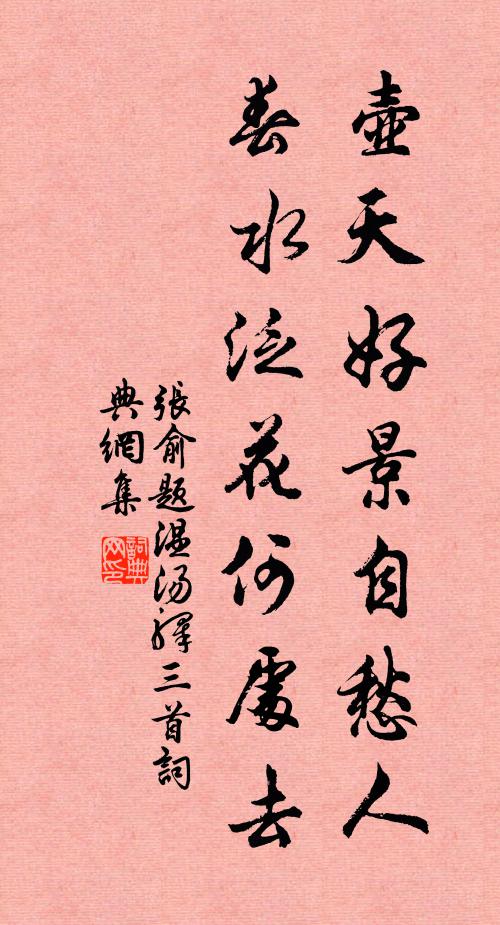 壺天好景自愁人
春水泛花何處去
張俞題温湯驛三首詞
典網集
詞典
网印